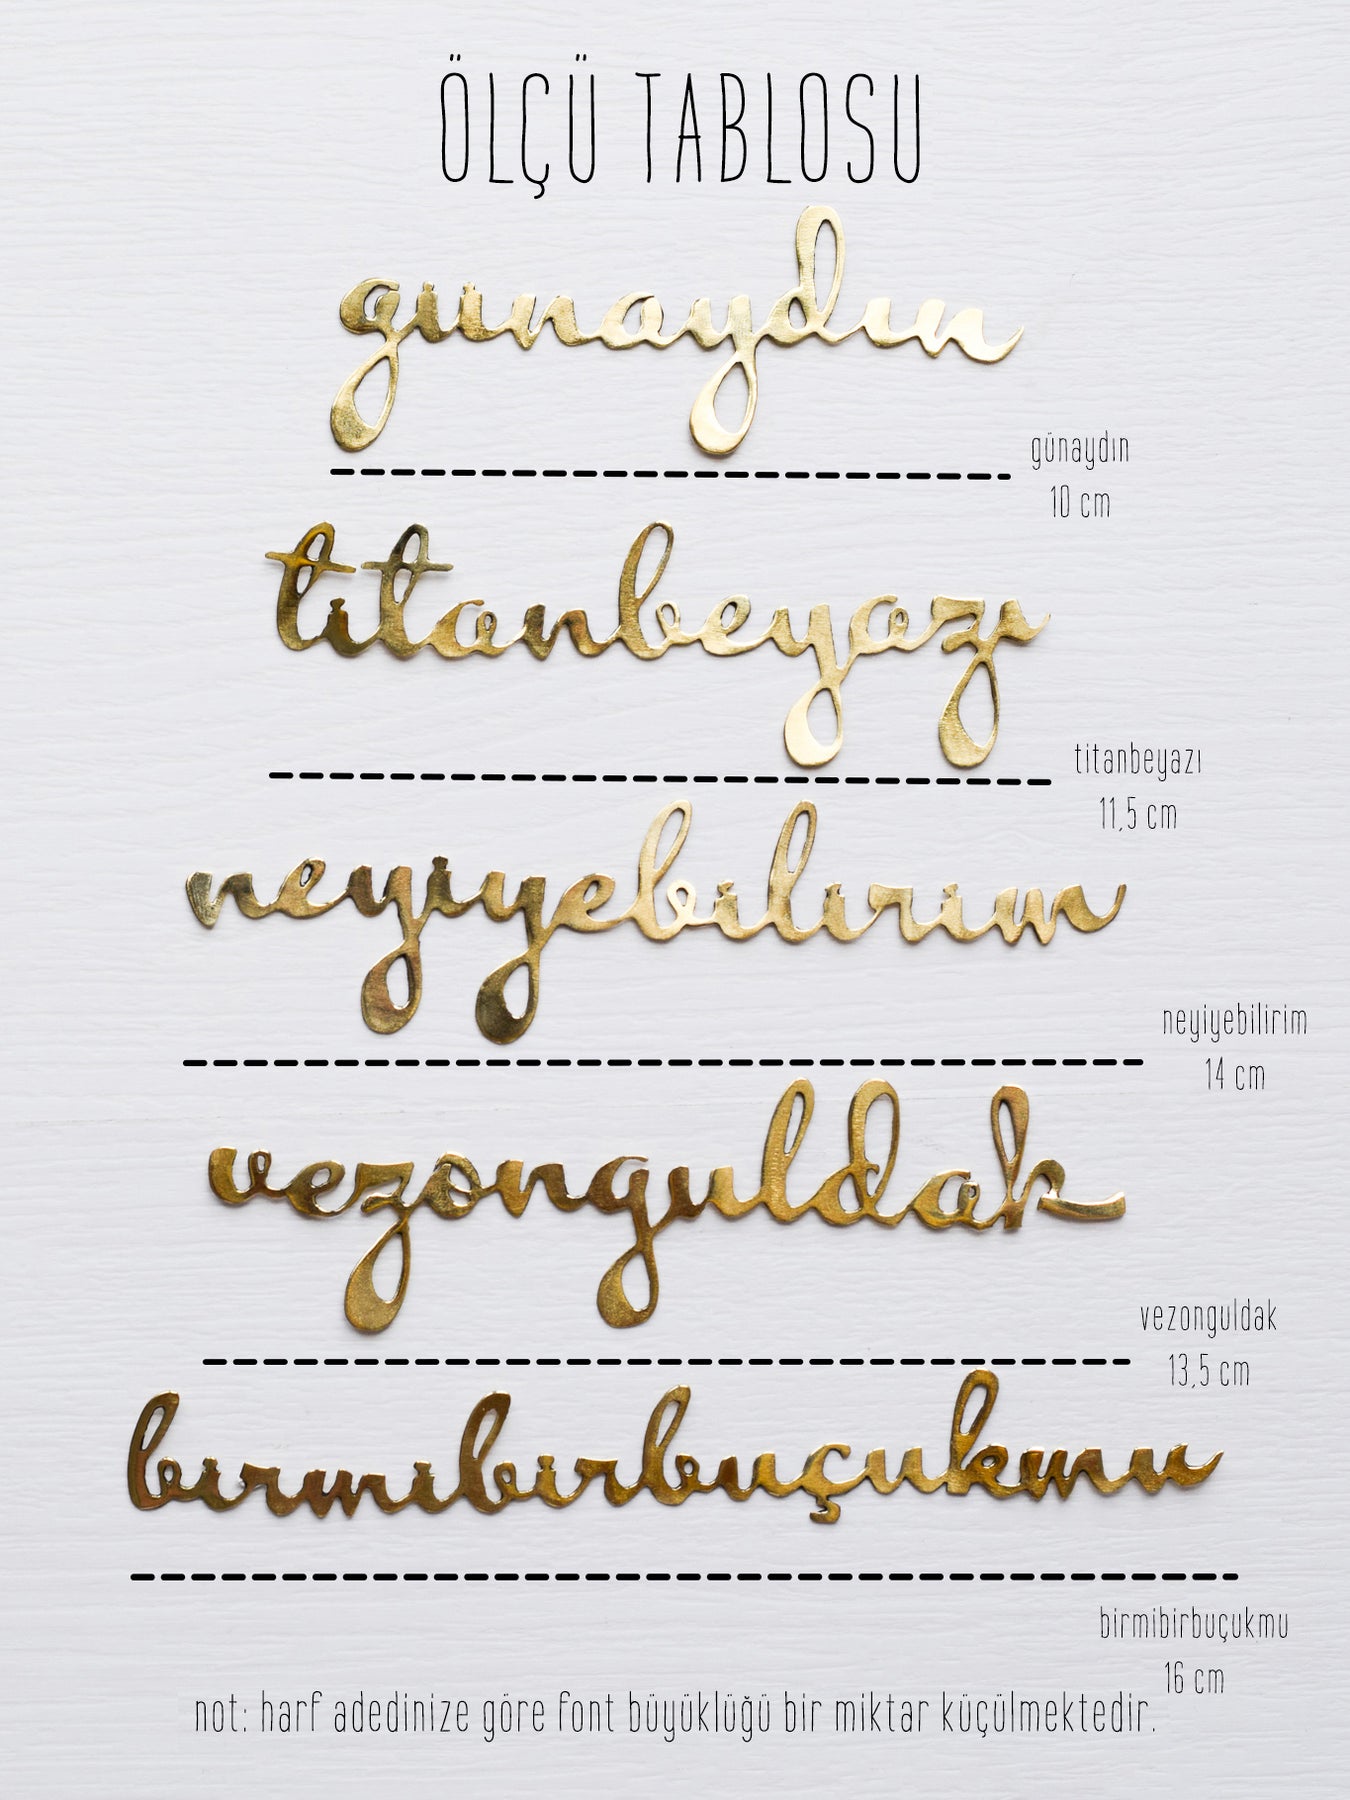 ÖLÇÜ TABLOSU
günaydın
günaydın
10 cm
titanbeyazı
titanbeyazı
11,5 cm
neyiyebilirim
neyiyebilirim
14 cm
vezonguldak
vezonguldak
13,5 cm
birmibirbuçukmu
birmibirbuçukmu
16 cm
not: harf adedinize göre font büyüklüğü bir miktar küçülmektedir.